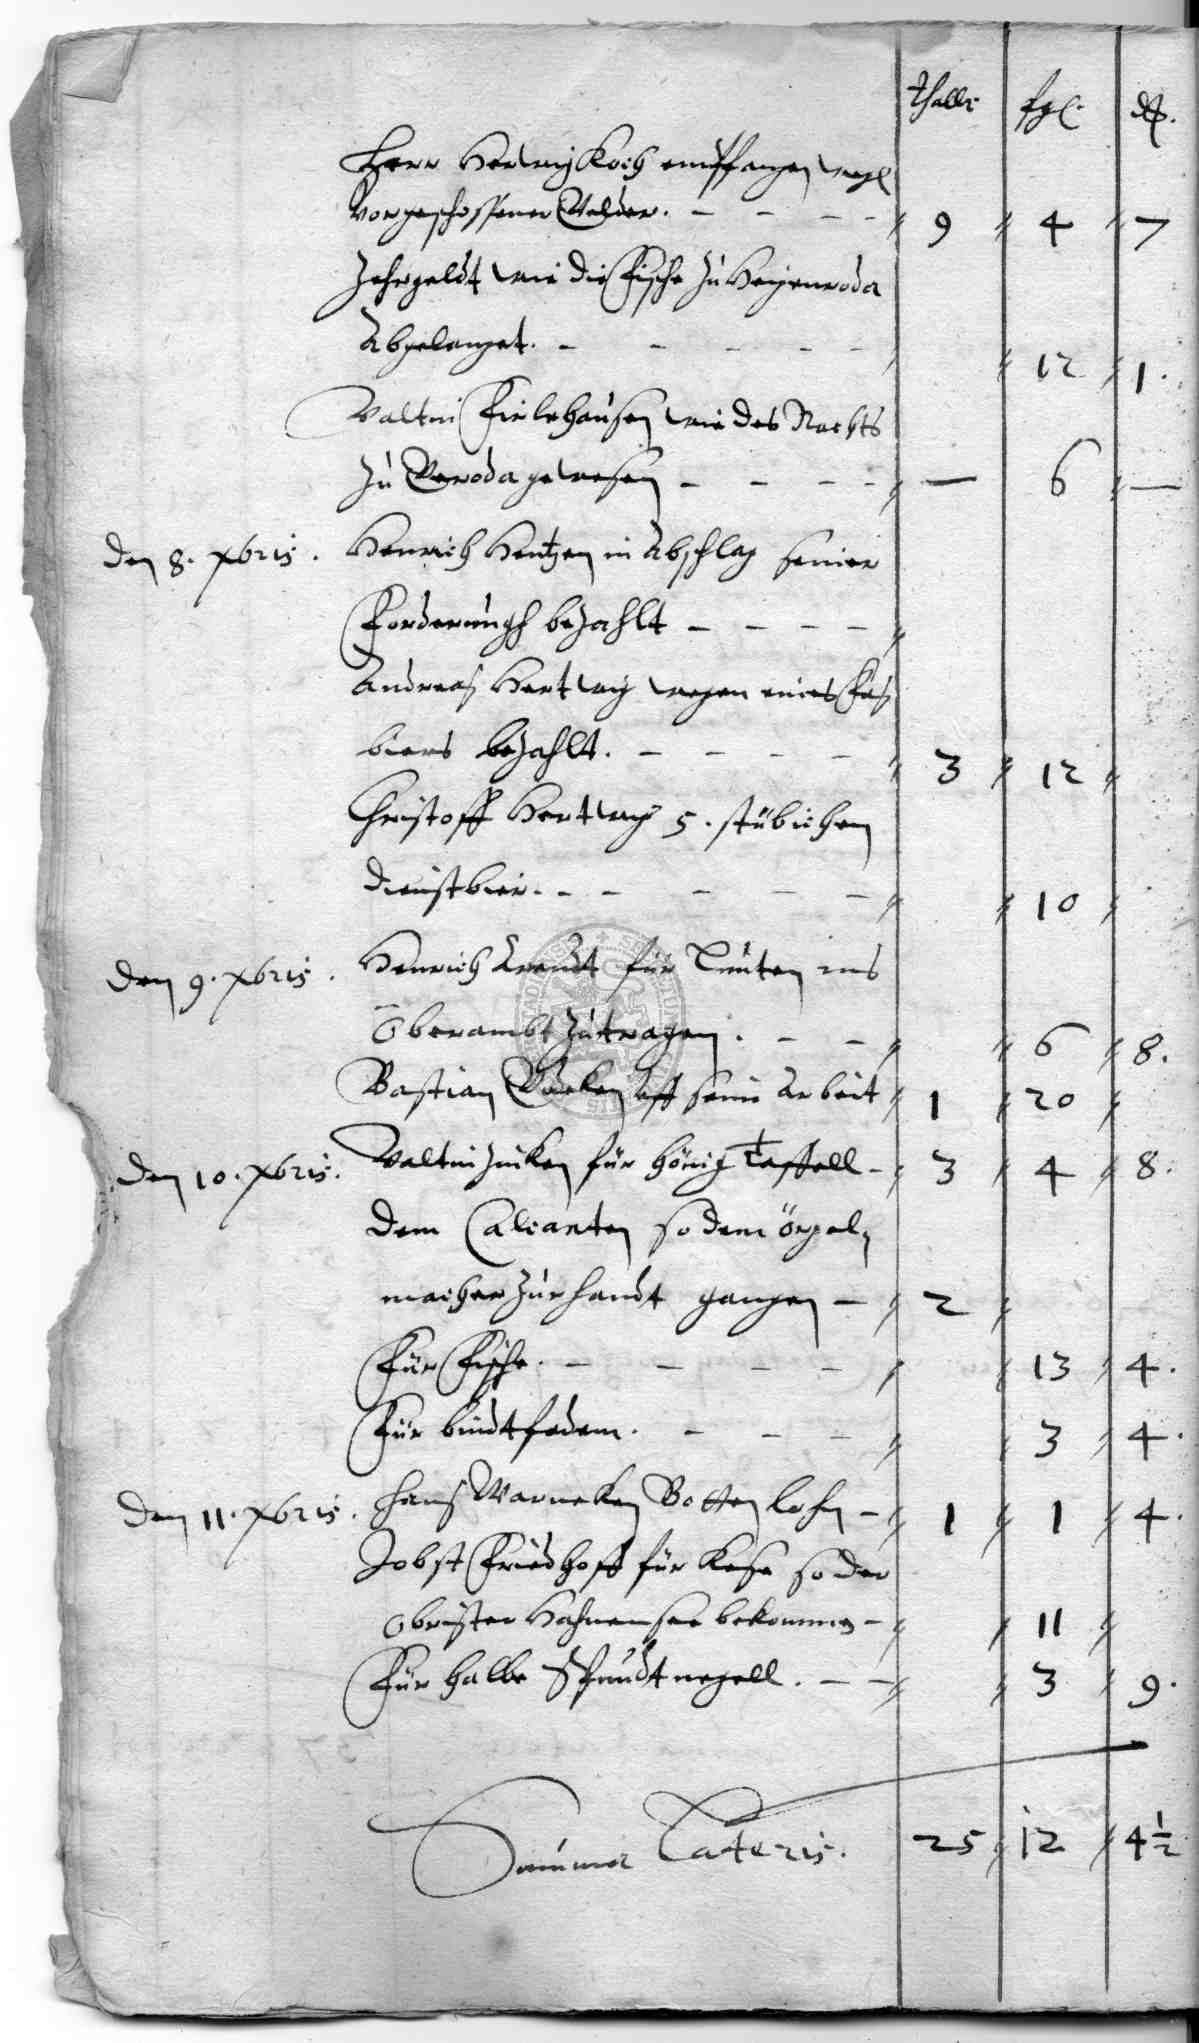 thalr fgl. ₰.
Herr Herwig Koch empffangen wegl
Vorgeschossener Gelder. - - - - 9 4 7
Zehrgeldt wie die Fische zu Heyenroda
Abgelanget. - - - - - 12 1.
Valtin Fielehausen wie des Nachts
zu Geroda gewesen - - - - — 6 —
den 8. xbris. Henrich Hentzen in Abschlag seiner
Forderungh bezahlt - - - -
Andreas Hertwig wegen eines Fas
biers bezahlt. - - - - 3 12
Christoff Hertwig 5. stübichen
dienstbier. - - - - - 10
den 9. xbris. Henrich Arendt für Leuten ins
Oberambt zutragen. - - 6 8.
Bastian uff seine Arbeit 1 20
den 10. xbris. Valtin Zincken für hönig Taffell - 3 4 8.
dem Calcanten so dem örgel,
macher zur handt gangen - 2
Für Fische. - - - - 13 4.
Für bindtfadem. - - - 3 4.
den 11. xbris. Hans Warneken Botten lohn - 1 1 4.
Jobst Friedhoff für Kese so der
Obrister Hahnensee bekommen - 11
Für halbe Spundtnegell. - - 3 9.
Summa Lateris. 25 12 4½